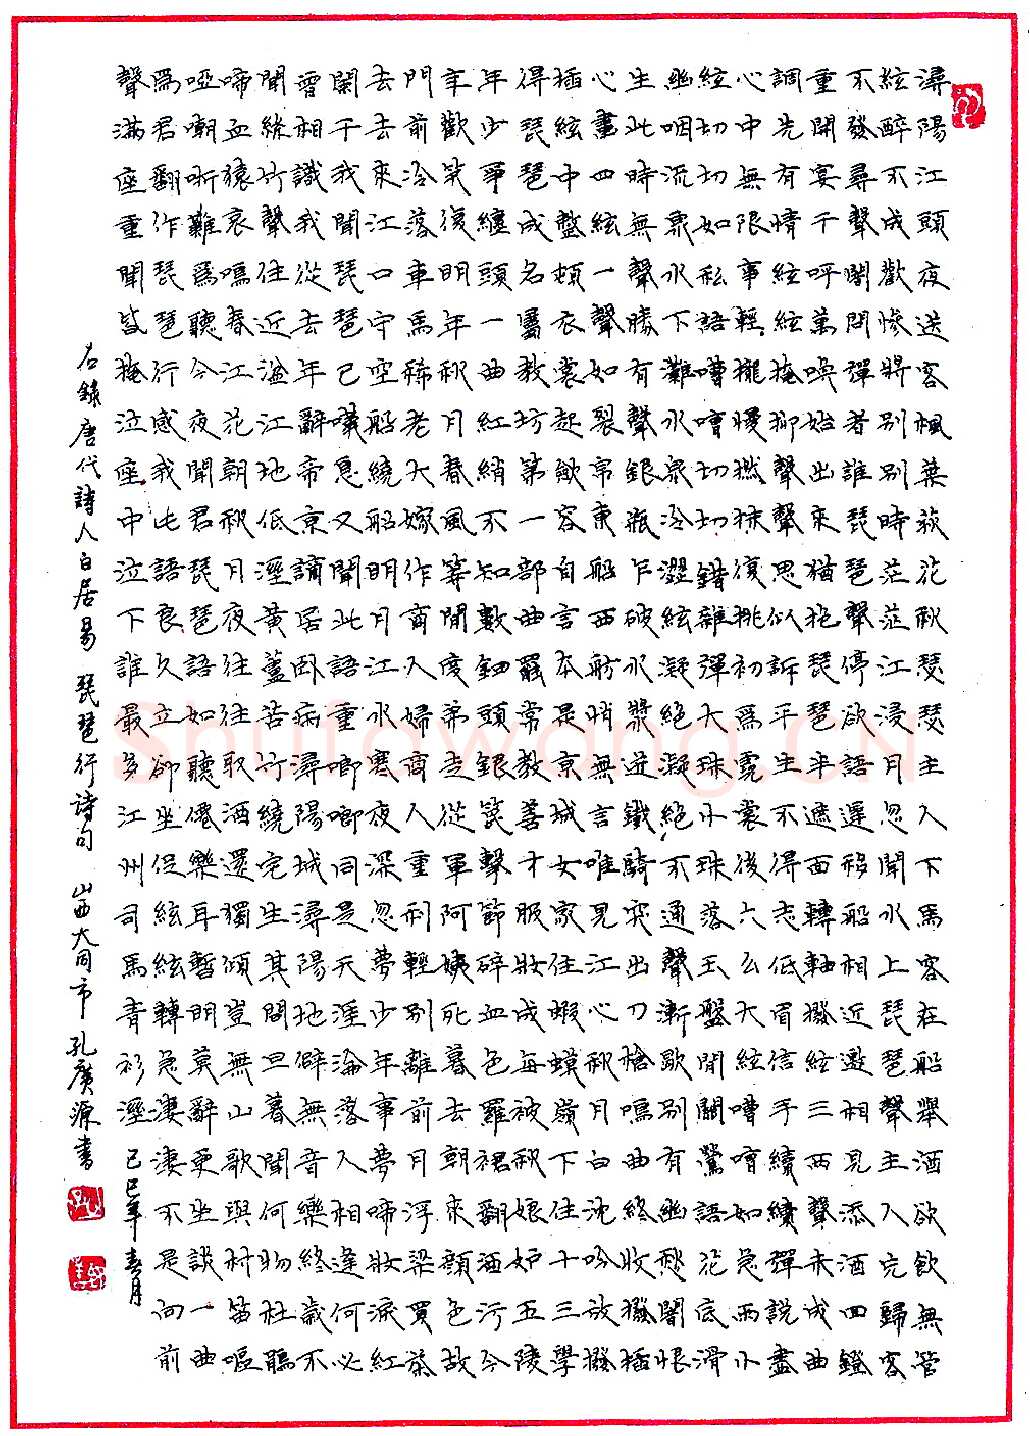 潯陽江頭夜送客楓葉荻花秋瑟瑟主人下馬客在船舉酒欲飲無管
絃醉不成歡慘將別別時茫茫江浸月忽聞水上琵琶聲主人忘歸客
不發尋聲闇問彈者誰琵琶聲停欲語遲移船相近邀相見添酒回鐙
重開宴千呼萬喚始出來猶抱琵琶半遮面轉軸撥絃三兩聲未成曲
調先有情絃絃掩抑聲聲思似訴平生不得志低眉信手續續彈說盡
心中無限事輕攏慢撚抹復挑初爲霓裳後六么大絃嘈嘈如急雨小
絃切切如私語嘈嘈切切錯雜彈大珠小珠落玉盤閒關鶯語花底滑
幽咽流泉水下灘水泉冷澀絃凝絕凝絕不通聲漸歇別有幽愁闇恨
生此時無聲勝有聲銀瓶乍破水漿迸鐵騎突出刀槍鳴曲終收撥插
心畫四絃一聲如裂帛東船西舫悄無言唯見江心秋月白沈吟放撥
插絃中整頓衣裳起斂容自言本是京城女家住蝦蟆嶺下住十三學
得琵琶成名屬教坊第一部曲罷常教善才服妝成每被秋娘妒五陵
年少爭纏頭一曲紅綃不知數鈿頭銀篦聲節碎血色羅裙翻酒污今
年歡笑復明年秋月春風等閒度弟走從軍阿姨死暮去朝來顏色故
門前冷落車馬稀老大嫁作商人婦商人重利輕別離前月浮梁買茶
去去來江口守空船繞船明月江水寒夜深忽夢少年事夢啼妝淚紅
闌干我聞琵琶已嘆息又聞此語重唧唧同是天涯淪落人相逢何必
曾相識我從去年辭帝京謫居臥病潯陽城潯陽地僻無音樂終歲不
聞絲竹聲住近湓江地低溼黃蘆苦竹繞宅生其間旦暮聞何物杜鵑
啼血猿哀鳴春江花朝秋月夜往往取酒還獨傾豈無山歌與村笛嘔
啞嘲哳難爲聽今夜聞君琵琶語如聽僊樂耳暫明莫辭更坐談一曲
爲君翻作琵琶行感我此語良久立卻坐促絃絃轉急淒淒不是向前
聲滿座重聞皆掩泣座中泣下誰最多江州司馬青衫溼
右錄唐代詩人白居易琵琶行詩句 山西大同市孔廣源書
己巳年春月